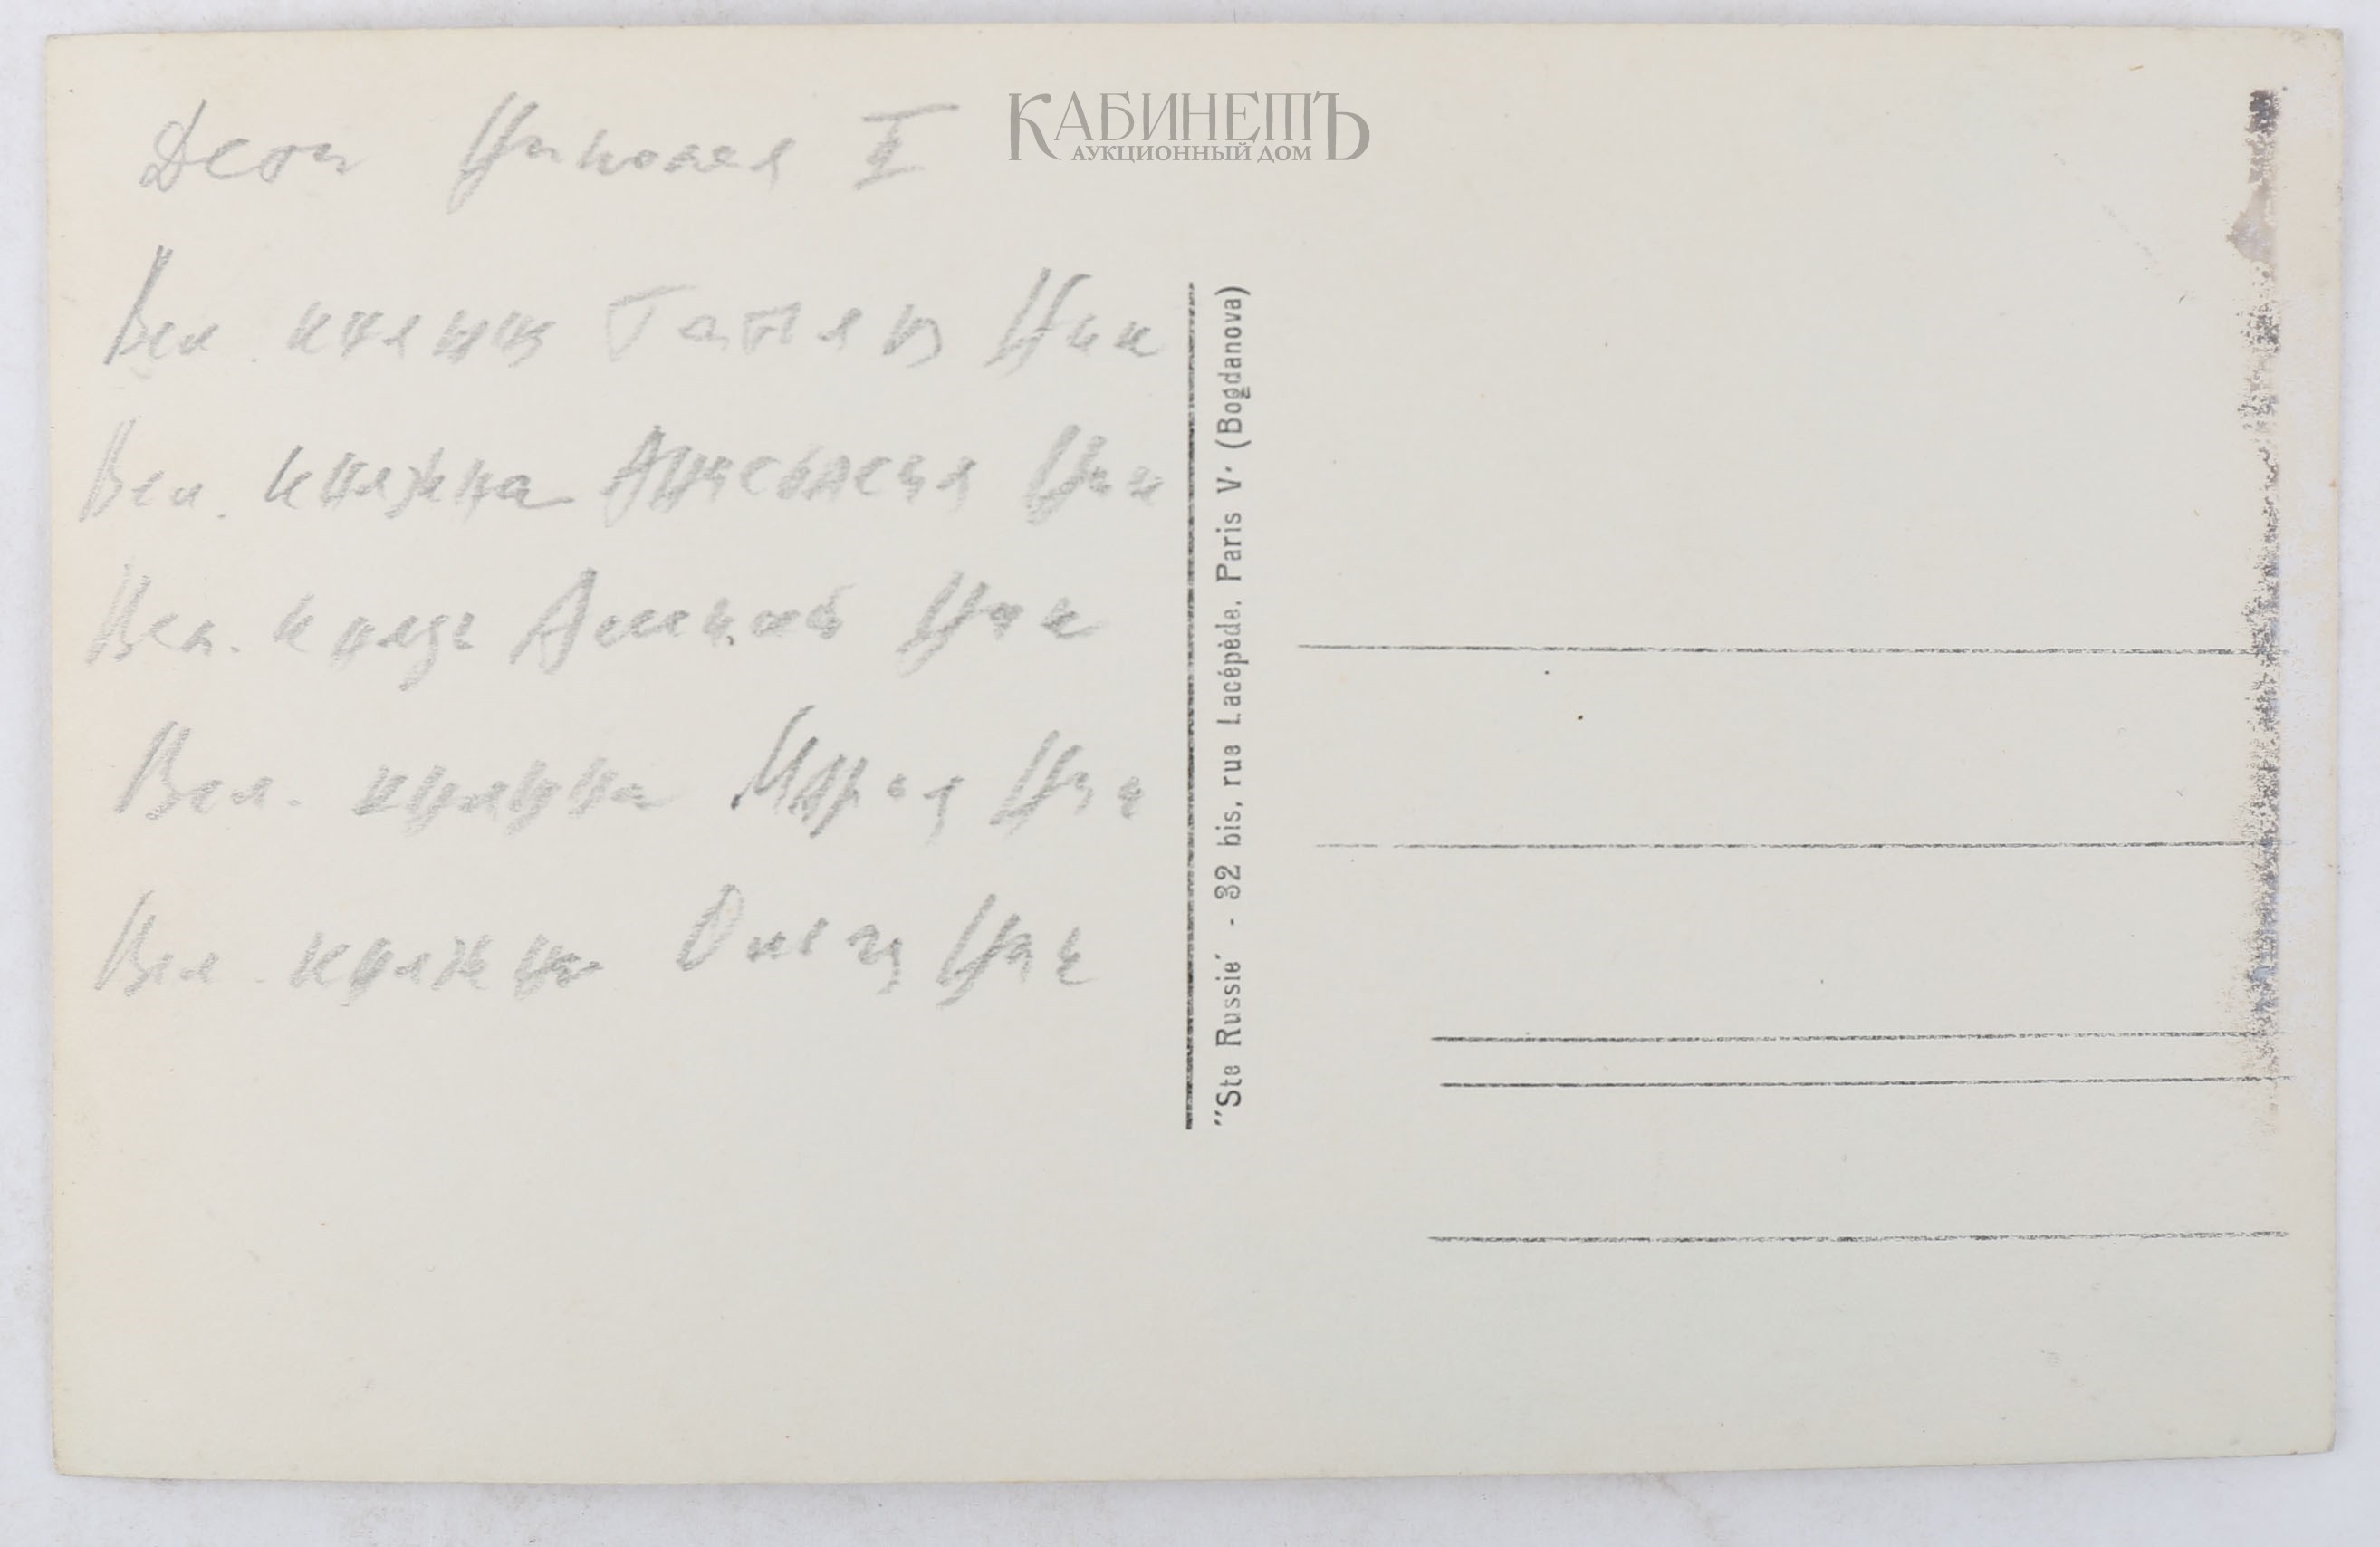 Дети Николая II
КАБИНЕТЪ
АУКЦИОННЫЙ ДОМ
Вел. княжна Татьяна Ник
Вел. княжна Анастасия Ник
Вел. князь Алексей Ник
Вел. княжна Мария Ник
Вел. княжна Ольга Ник
"Ste Russie" - 32 bis, rue Lacépède, Paris V· (Bogdanova)